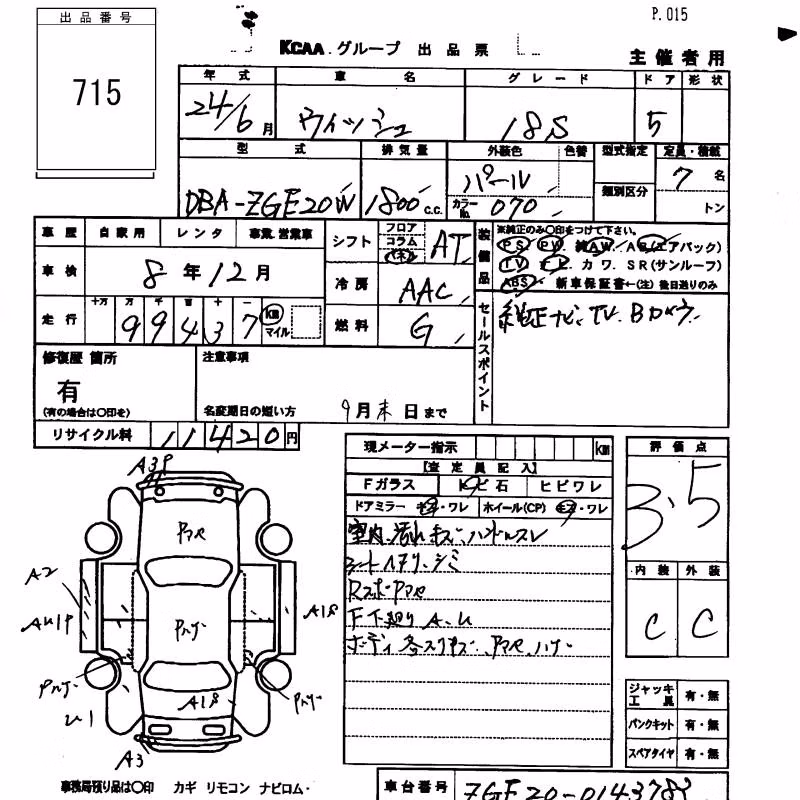 P.015
出品番号
715
KCAA.グループ 出品票
主催者用
年式 車名 グレード ドア 形状
24/6月 ウィッシュ 18S 5
型式 排気量 外装色 色替 型式指定 定員・積載
DBA-ZGE20W 1800 c.c. パール 類別区分 7名
カラーNo. 070 トン
車歴 自家用 レンタ 事業.営業車
シフト フロア コラム パネル AT
車検 8年12月
冷房 AAC
走行 十万 万 千 百 十 一
99437 km マイル
燃料 G
装備品
※純正のみ〇印をつけて下さい。
PS PW 純AW AB(エアバック)
TV ナビ カワ SR(サンルーフ)
ABS 新車保証書←(注)後日送りのみ
セールスポイント
純正ナビ、TV、Bカメラ
修復歴 箇所
有
(有の場合は〇印を)
注意事項
名変期日の短い方 9月末日まで
リサイクル料 11420円
現メーター指示 km
【査定員記入】
Fガラス トビ石 ヒビワレ
ドアミラー キズ・ワレ ホイール(CP) キズ・ワレ
室内汚れキズ・ハンドルスレ
シート ヘタリ・シミ
F下廻り A、U
評価点
3.5
内装 外装
C C
ジャッキ工具 有・無
パンクキット 有・無
スペアタイヤ 有・無
A2
A18
A18
U1
A3
事務局預り品は〇印 カギ リモコン ナビロム・
車台番号 ZGE20-0143783